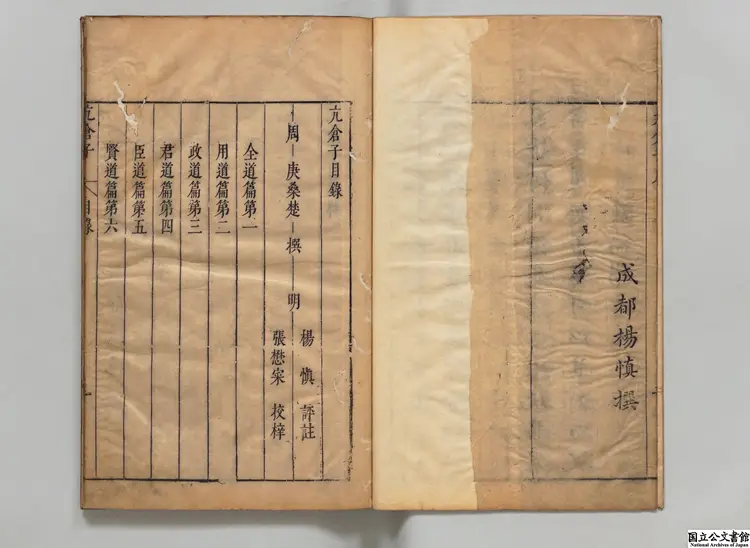 成都楊慎撰
亢倉子目錄
周 庚桑楚 撰 明 楊慎 評註
張懋寀 校梓
全道篇第一
用道篇第二
政道篇第三
君道篇第四
臣道篇第五
賢道篇第六
亢倉子 目錄 一
国立公文書館
National Archives of Japan